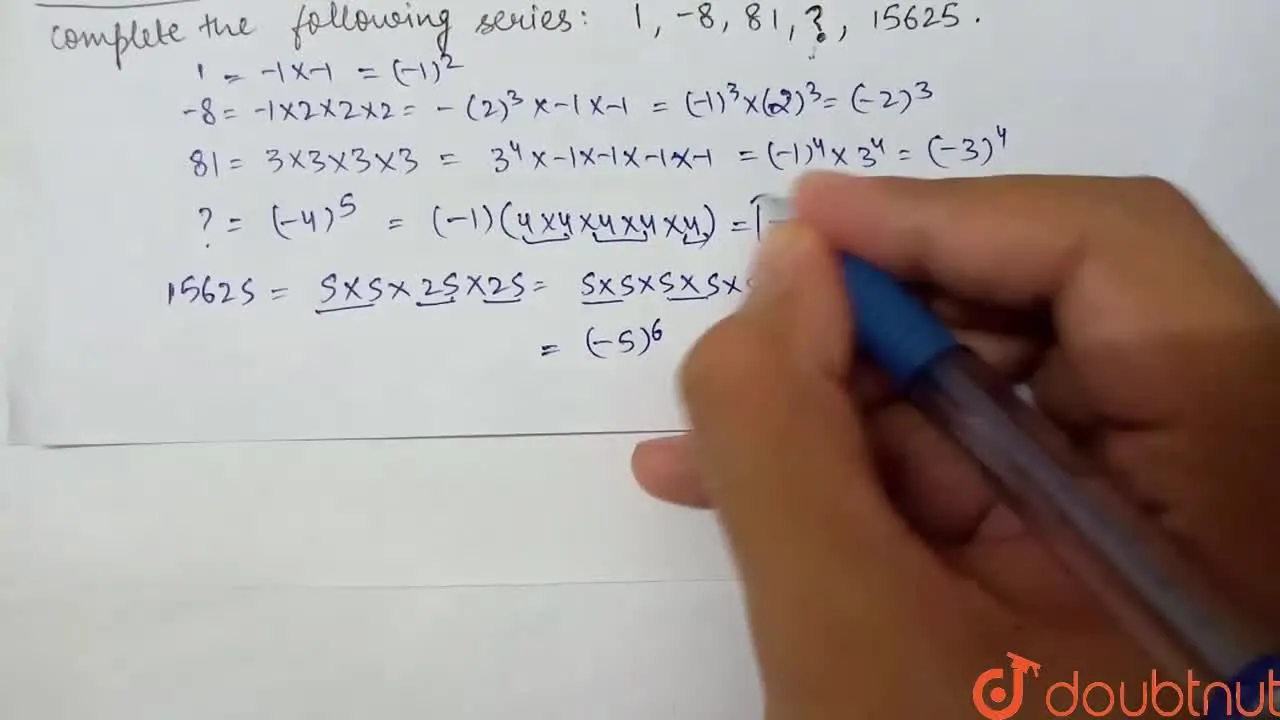 complete the following series: 1, -8, 81, ?, 15625.
1 = -1×-1 = (-1)²
-8 = -1×2×2×2 = -(2)³ × -1 × -1 = (-1)³×(2)³ = (-2)³
81 = 3×3×3×3 = 3⁴ × -1×-1×-1×-1 = (-1)⁴ × 3⁴ = (-3)⁴
? = (-4)⁵ = (-1)(4×4×4×4×4) =
15625 = 5×5×25×25 = 5×5×5×5×
= (-5)⁶
doubtnut